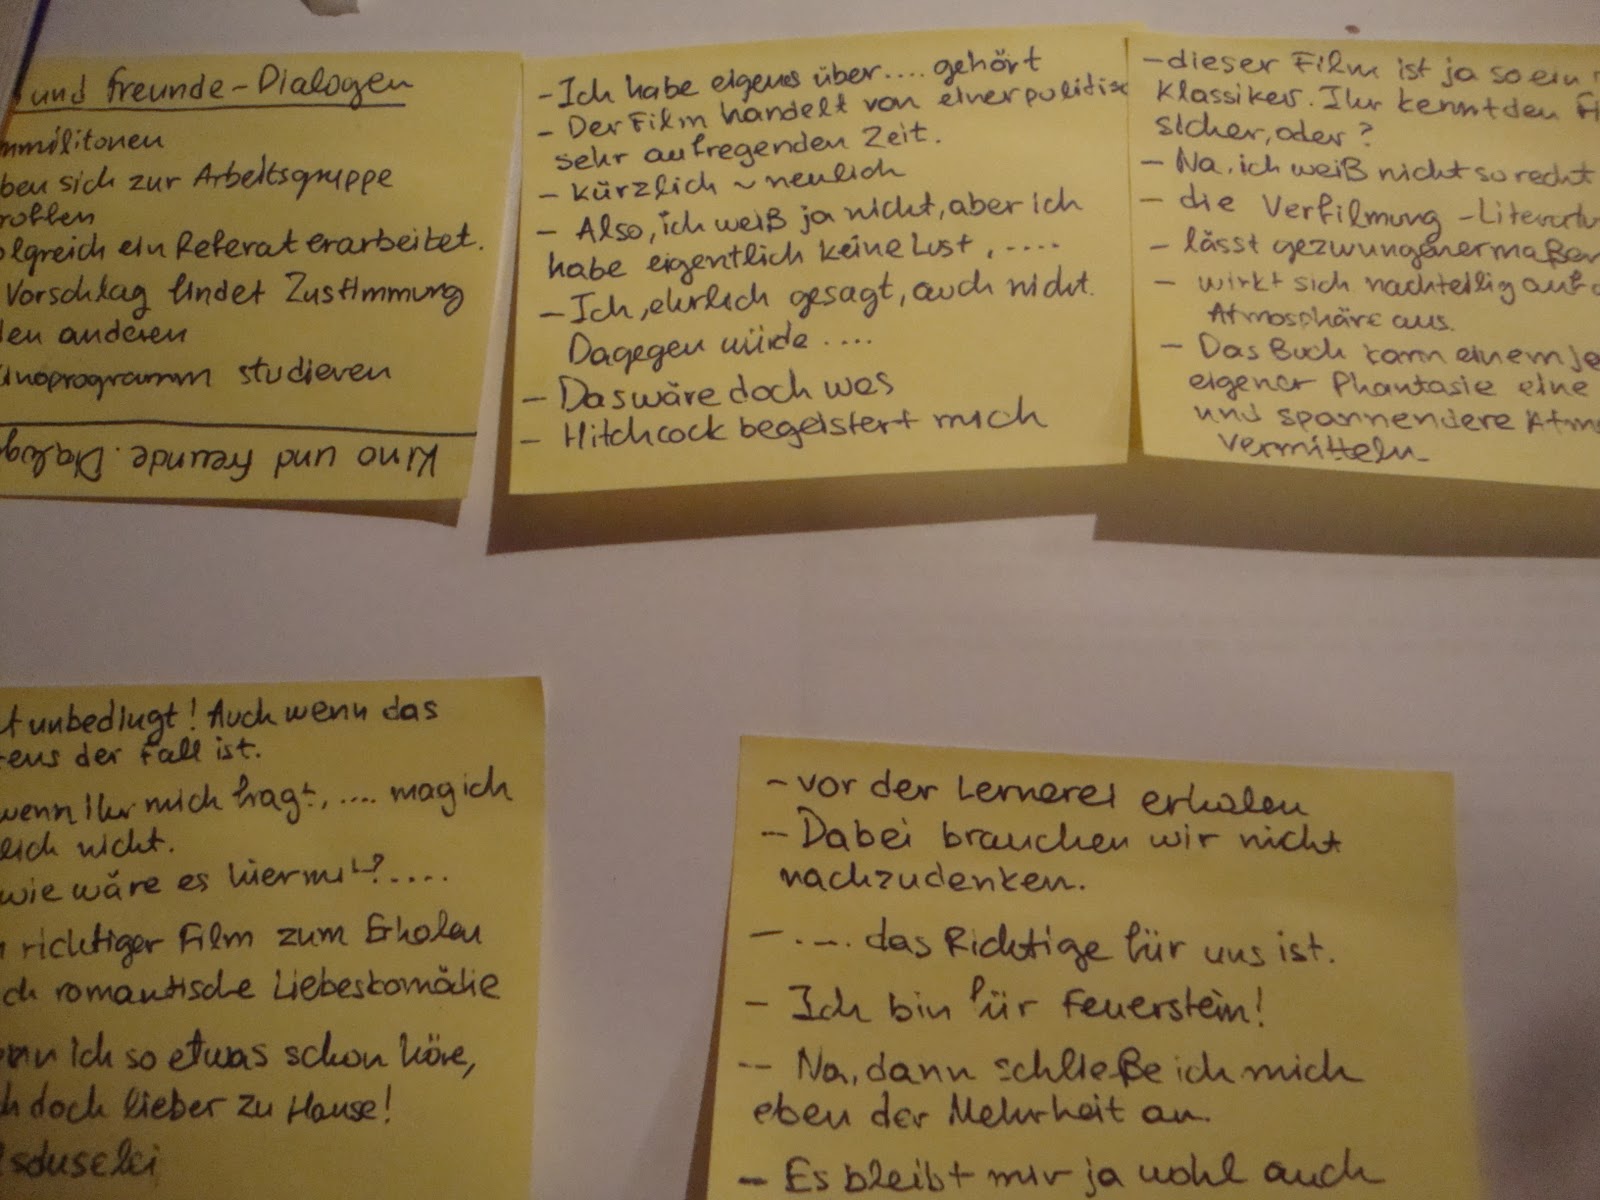 und freunde-Dialogen
mmilitonen
ben sich zur Arbeitsgruppe
rollen
olgreich ein Referat erarbeitet.
Vorschlag findet Zustimmung
den anderen
inoprogramm studieren
Kino und freunde. Dialog
- Ich habe eigens über.... gehört
- Der Film handelt von einer politisc
sehr aufregenden Zeit.
- kürzlich ~ neulich
- Also, ich weiß ja nicht, aber ich
habe eigentlich keine Lust, ....
- Ich, ehrlich gesagt, auch nicht.
Dagegen würde ....
- Das wäre doch was
- Hitchcock begeistert mich
- dieser Film ist ja so ein
Klassiker. Ihr kennt den Fi
sicher, oder?
- Na, ich weiß nicht so recht
- die Verfilmung - Literatu
- lässt gezwungenermaßen
- wirkt sich nachteilig auf d
Atmosphäre aus.
- Das Buch kann einem je
eigener Phantasie eine
und spannendere Atm
vermitteln
t unbedingt! Auch wenn das
tens der Fall ist.
wenn Ihr mich fragt, .... mag ich
eich nicht.
wie wäre es hiermit?.....
richtiger Film zum Erholen
ch romantische Liebeskomödie
nn ich so etwas schon höre,
h doch lieber zu Hause!
lsduselei
- vor der Lernerei erholen
- Dabei brauchen wir nicht
nachzudenken.
- .-.. das Richtige für uns ist.
- Ich bin für Feuerstein!
-- Na, dann schließe ich mich
eben der Mehrheit an.
- Es bleibt mir ja wohl auch